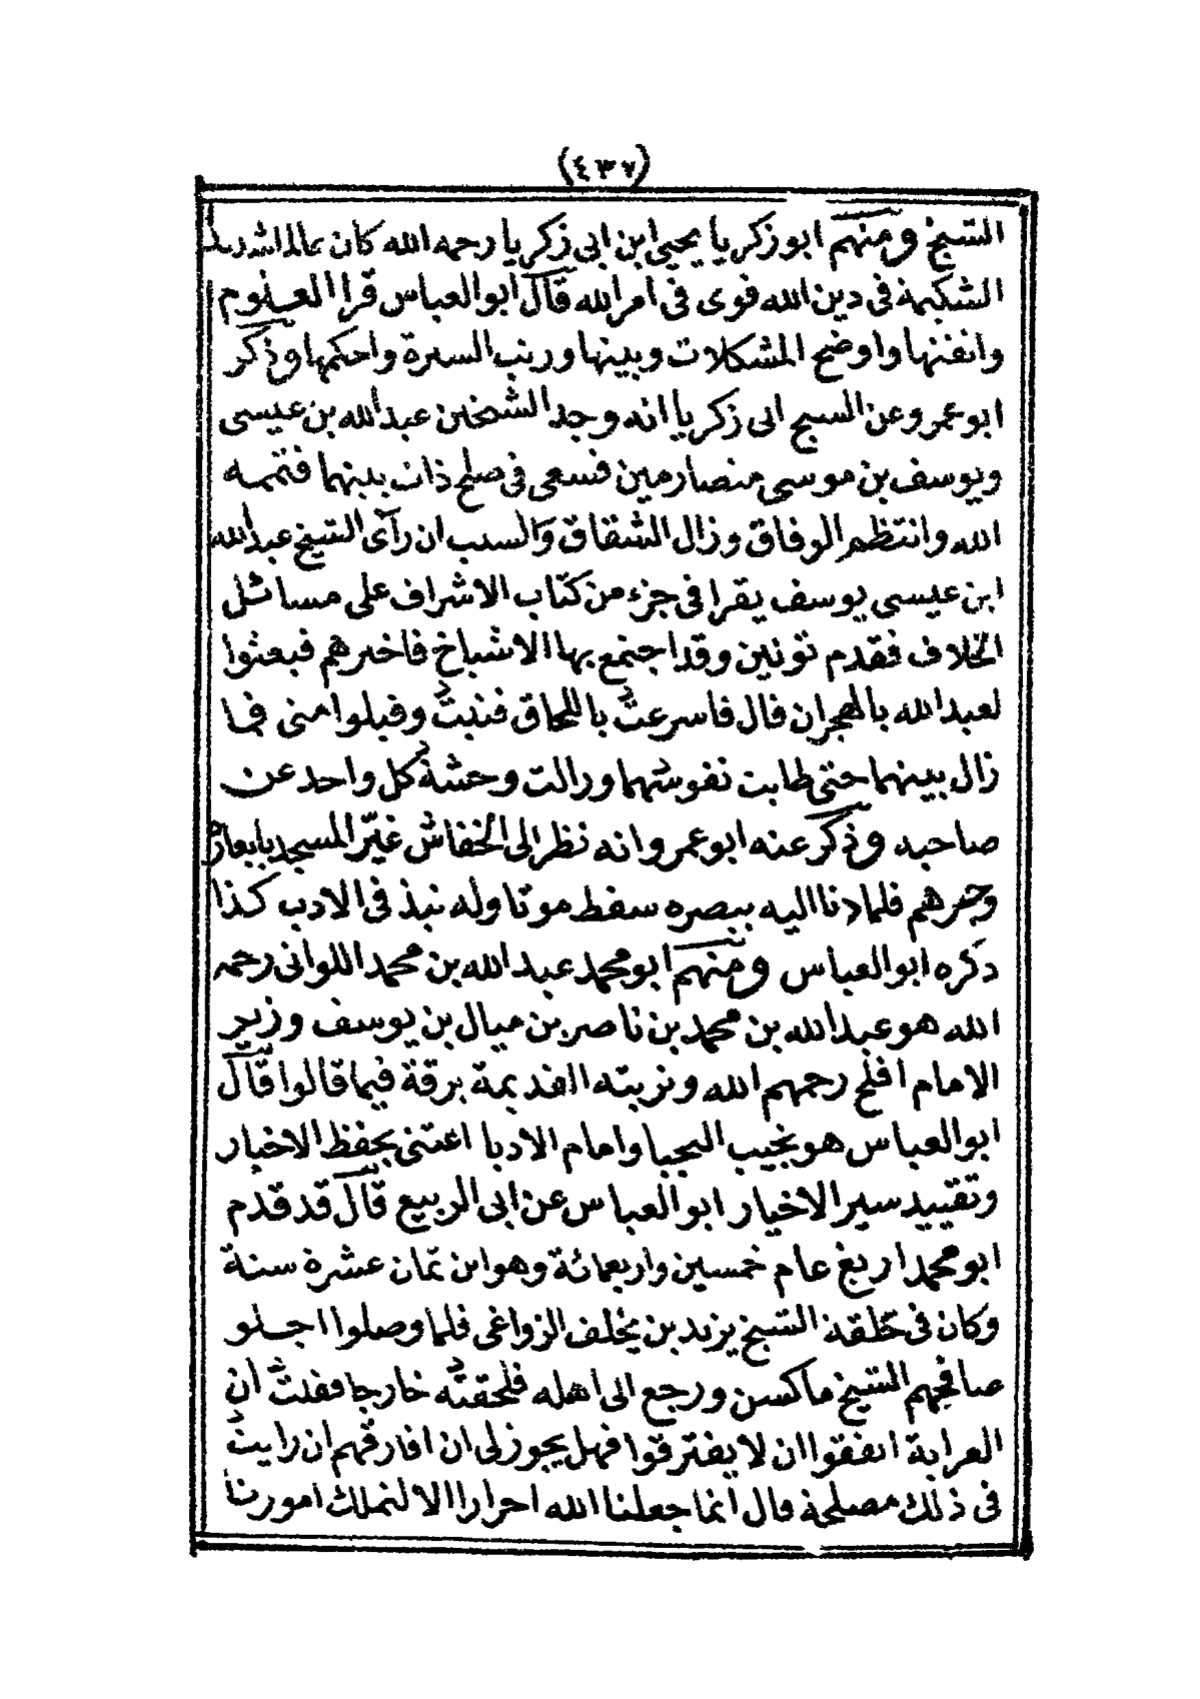 (٤٣٧)
الشيخ ومنهم ابو زكريا يحيى ابن ابى زكريا رحمه الله كان عالما شديد
الشكيمة فى دين الله قوى فى امر الله قال ابو العباس قرا العلوم
واتقنها واوضح المشكلات وبينها ورتب السيرة واحكمها وذكر
ابو عمرو عن الشيخ ابى زكريا انه وجد الشيخين عبد الله بن عيسى
ويوسف بن موسى متصارمين فسعى فى صلح ذات بينهما فتممه
الله وانتظم الوفاق وزال الشقاق والسبب ان رآى الشيخ عبد الله
ابن عيسى يوسف يقرا فى جزء من كتاب الاشراف على مسائل
الخلاف فقدم تونين وقد اجتمع بها الاشياخ فاخبرهم فبعثوا
لعبد الله بالهجران قال فاسرعت باللحاق فتبت وقبلوا منى فما
زال بينهما حتى طابت نفوسهما وزالت وحشة كل واحد عن
صاحبه وذكر عنه ابو عمرو انه نظر الى الخفاش غير المسجد بابعار
وغيرهم فلما دنا اليه ببصره سقط موتا وله نبذ فى الادب كذا
ذكره ابو العباس ومنهم ابو محمد عبد الله بن محمد اللواتى رحمه
الله هو عبد الله بن محمد بن ناصر بن ميال بن يوسف وزير
الامام افلح رحمهم الله وتربته القديمة برقة فيما قالوا قال
ابو العباس هو نجيب النجبا وامام الادبا اعتنى بحفظ الاخبار
وتقييد سير الاخيار ابو العباس عن ابى الربيع قال قد قدم
ابو محمد اريغ عام خمسين واربعمائة وهو ابن ثمان عشرة سنة
وكان فى حلقة الشيخ يزيد بن يخلف الزواغى فلما وصلوا اجلو
صافحهم الشيخ ماكسن ورجع الى اهله فلحقته خارجا فقلت ان
العزابة اتفقوا ان لا يفترقوا فهل يجوز لى ان افارقهم ان رايت
فى ذلك مصلحة قال انما جعلنا الله احرارا الا لنملك امورنا